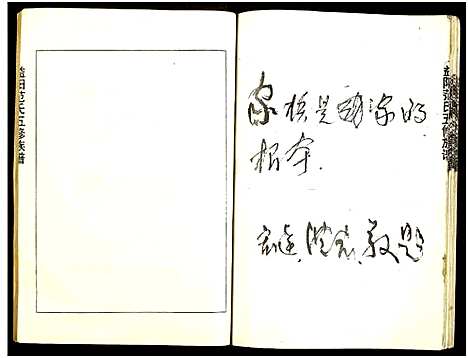 益阳范氏五修族谱
家族是国家的
根本.
敬题
益阳范氏五修族谱